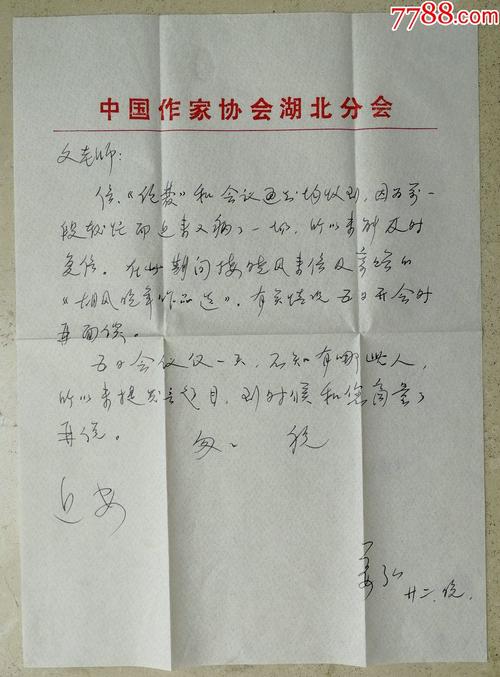 7788.com
中国作家协会湖北分会
文老师：
信、《绝赞》和会议通知均收到，因为前一
段较忙而近来又病了一场，所以未能及时
复信。在此期间接晓风来信及寄给的
《胡风晚年作品选》，有关情况五日开会时
再面谈。
五日会议仅一天，不知有哪些人，
所以未提发言题目，到时候和您商量了
再说。
匆匆 祝
近安
姜弘
廿二.晚.